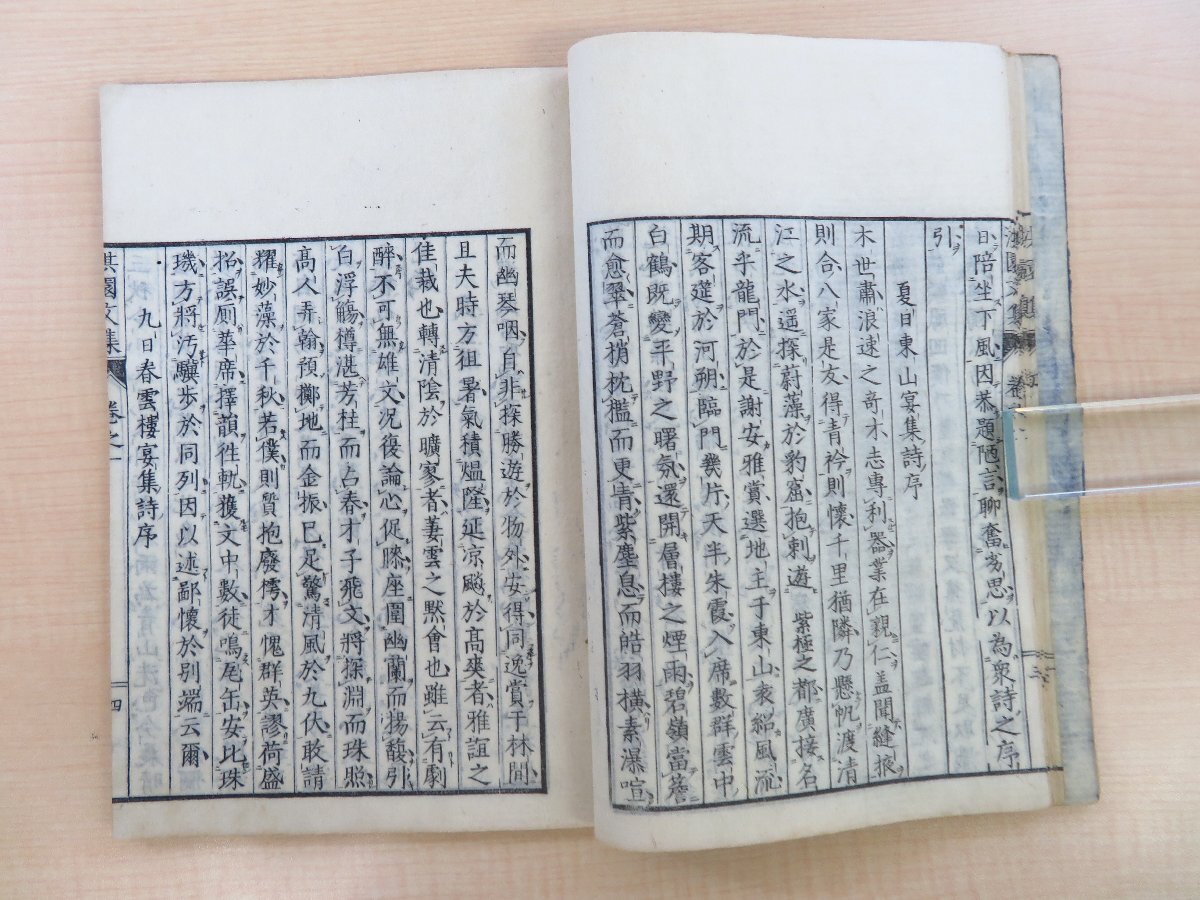 日陪坐下風因恭題陋言聊奮劣思以為衆詩之序
引
夏日東山宴集詩序
木世肅浪速之奇木志專利器業在親仁蓋聞縫掖
則合八家是友得青衿則懷千里猶隣乃懸帆渡清
江之水遥探蔚藻於豹窟抱刺遊紫極之都廣接名
流乎龍門於是謝安雅賞選地主于東山袁紹風流
期客筵於河朔臨門幾片天半朱霞入席數群雲中
白鶴既變平野之曙氛還開層樓之煙雨碧嶺當簷
而愈翠蒼梢枕檻而東青紫塵息而皓羽横素瀑喧
而幽琴咽自非探勝遊於物外安得同逸賞于林間
且夫時方徂暑氣積熅隆延凉飈於高爽者雅誼之
佳裁也轉清陰於曠家者萋雲之黙會也雖云有劇
醉不可無雄文况復論心促膝座圍幽蘭而揚馥引
白浮觴樽湛芳桂而占春才子飛文將探淵而珠照
高人弄翰預擲地而金振已足驚清風於九伏敢請
耀妙藻於千秋若僕則質抱廢樗才愧群英謬荷盛
招誤厠華席擇韻徃軌獲文中數徒鳴瓦缶安比珠
璣方將汚驥歩於同列因以述鄙懷於別端云爾
九日春雲樓宴集詩序
淇園文集
卷之一
四